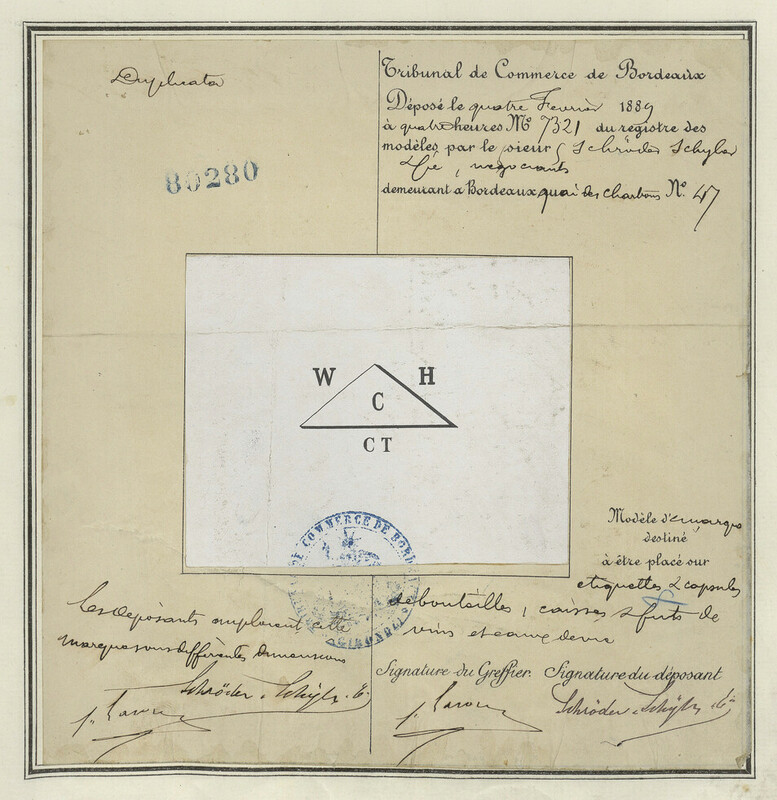 Duplicata
80280
Tribunal de Commerce de Bordeaux
Déposé le quatre Février 1889
à quatre heures No 7321 du registre des
modèles par le sieur Schröder Schyler
& Cie, négociants
demeurant à Bordeaux quai des Chartrons No. 47
W H
C
CT
DE COMMERCE DE BORDE
GIRONDE
Modèle de marque
destiné
à être placé sur
etiquettes & capsules
de bouteilles, caisses & futs de
vins et eaux de vie
Les déposants emploient cette
marque sous différentes dimensions
Schröder & Schÿler & Cie
Signature du Greffier. Signature du déposant
Schröder & Schÿler & Cie